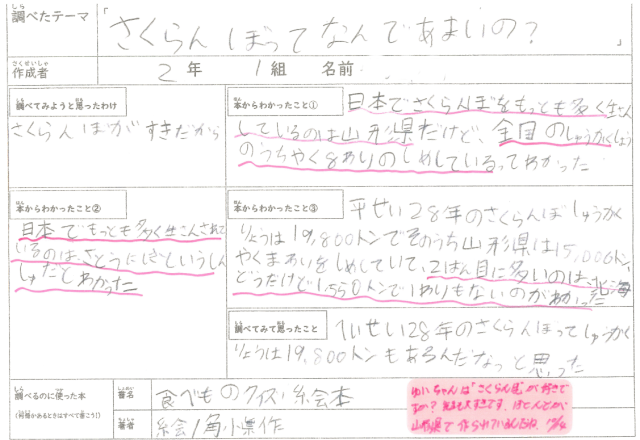 調べたテーマ
「さくらんぼってなんであまいの?」
作成者
2年 1組 名前
調べてみようと思ったわけ
さくらんぼがすきだから
本からわかったこと①
日本でさくらんぼをもっとも多く生さん
しているのは山形県だけど、全国のしゅうかくりょう
のうちやく8わりのしめしているってわかった
本からわかったこと②
日本でもっとも多く生こんされて
いるのは、さとうにしきというしん
しゅだとわかった
本からわかったこと③
平せい28年のさくらんぼしゅうかく
りょうは19,800トンでそのうち山形県は15,000トン、
やくまわりをしめしていて、2ばん目に多いのは、北海
どうだけど1,550トンで1わりもないのがわかった
調べてみて思ったこと
へいせい28年のさくらんぼってしゅうかく
りょうは19,800トンもあるんだなっと思った
調べるのに使った本
(何冊かあるときはすべて書こう!)
書名
食べものクイズ絵本
著者
ゆいちゃんは「さくらんぼ」が好きで
すか?先生も大すきです。ほとんどが
山形県で作られているんだね。